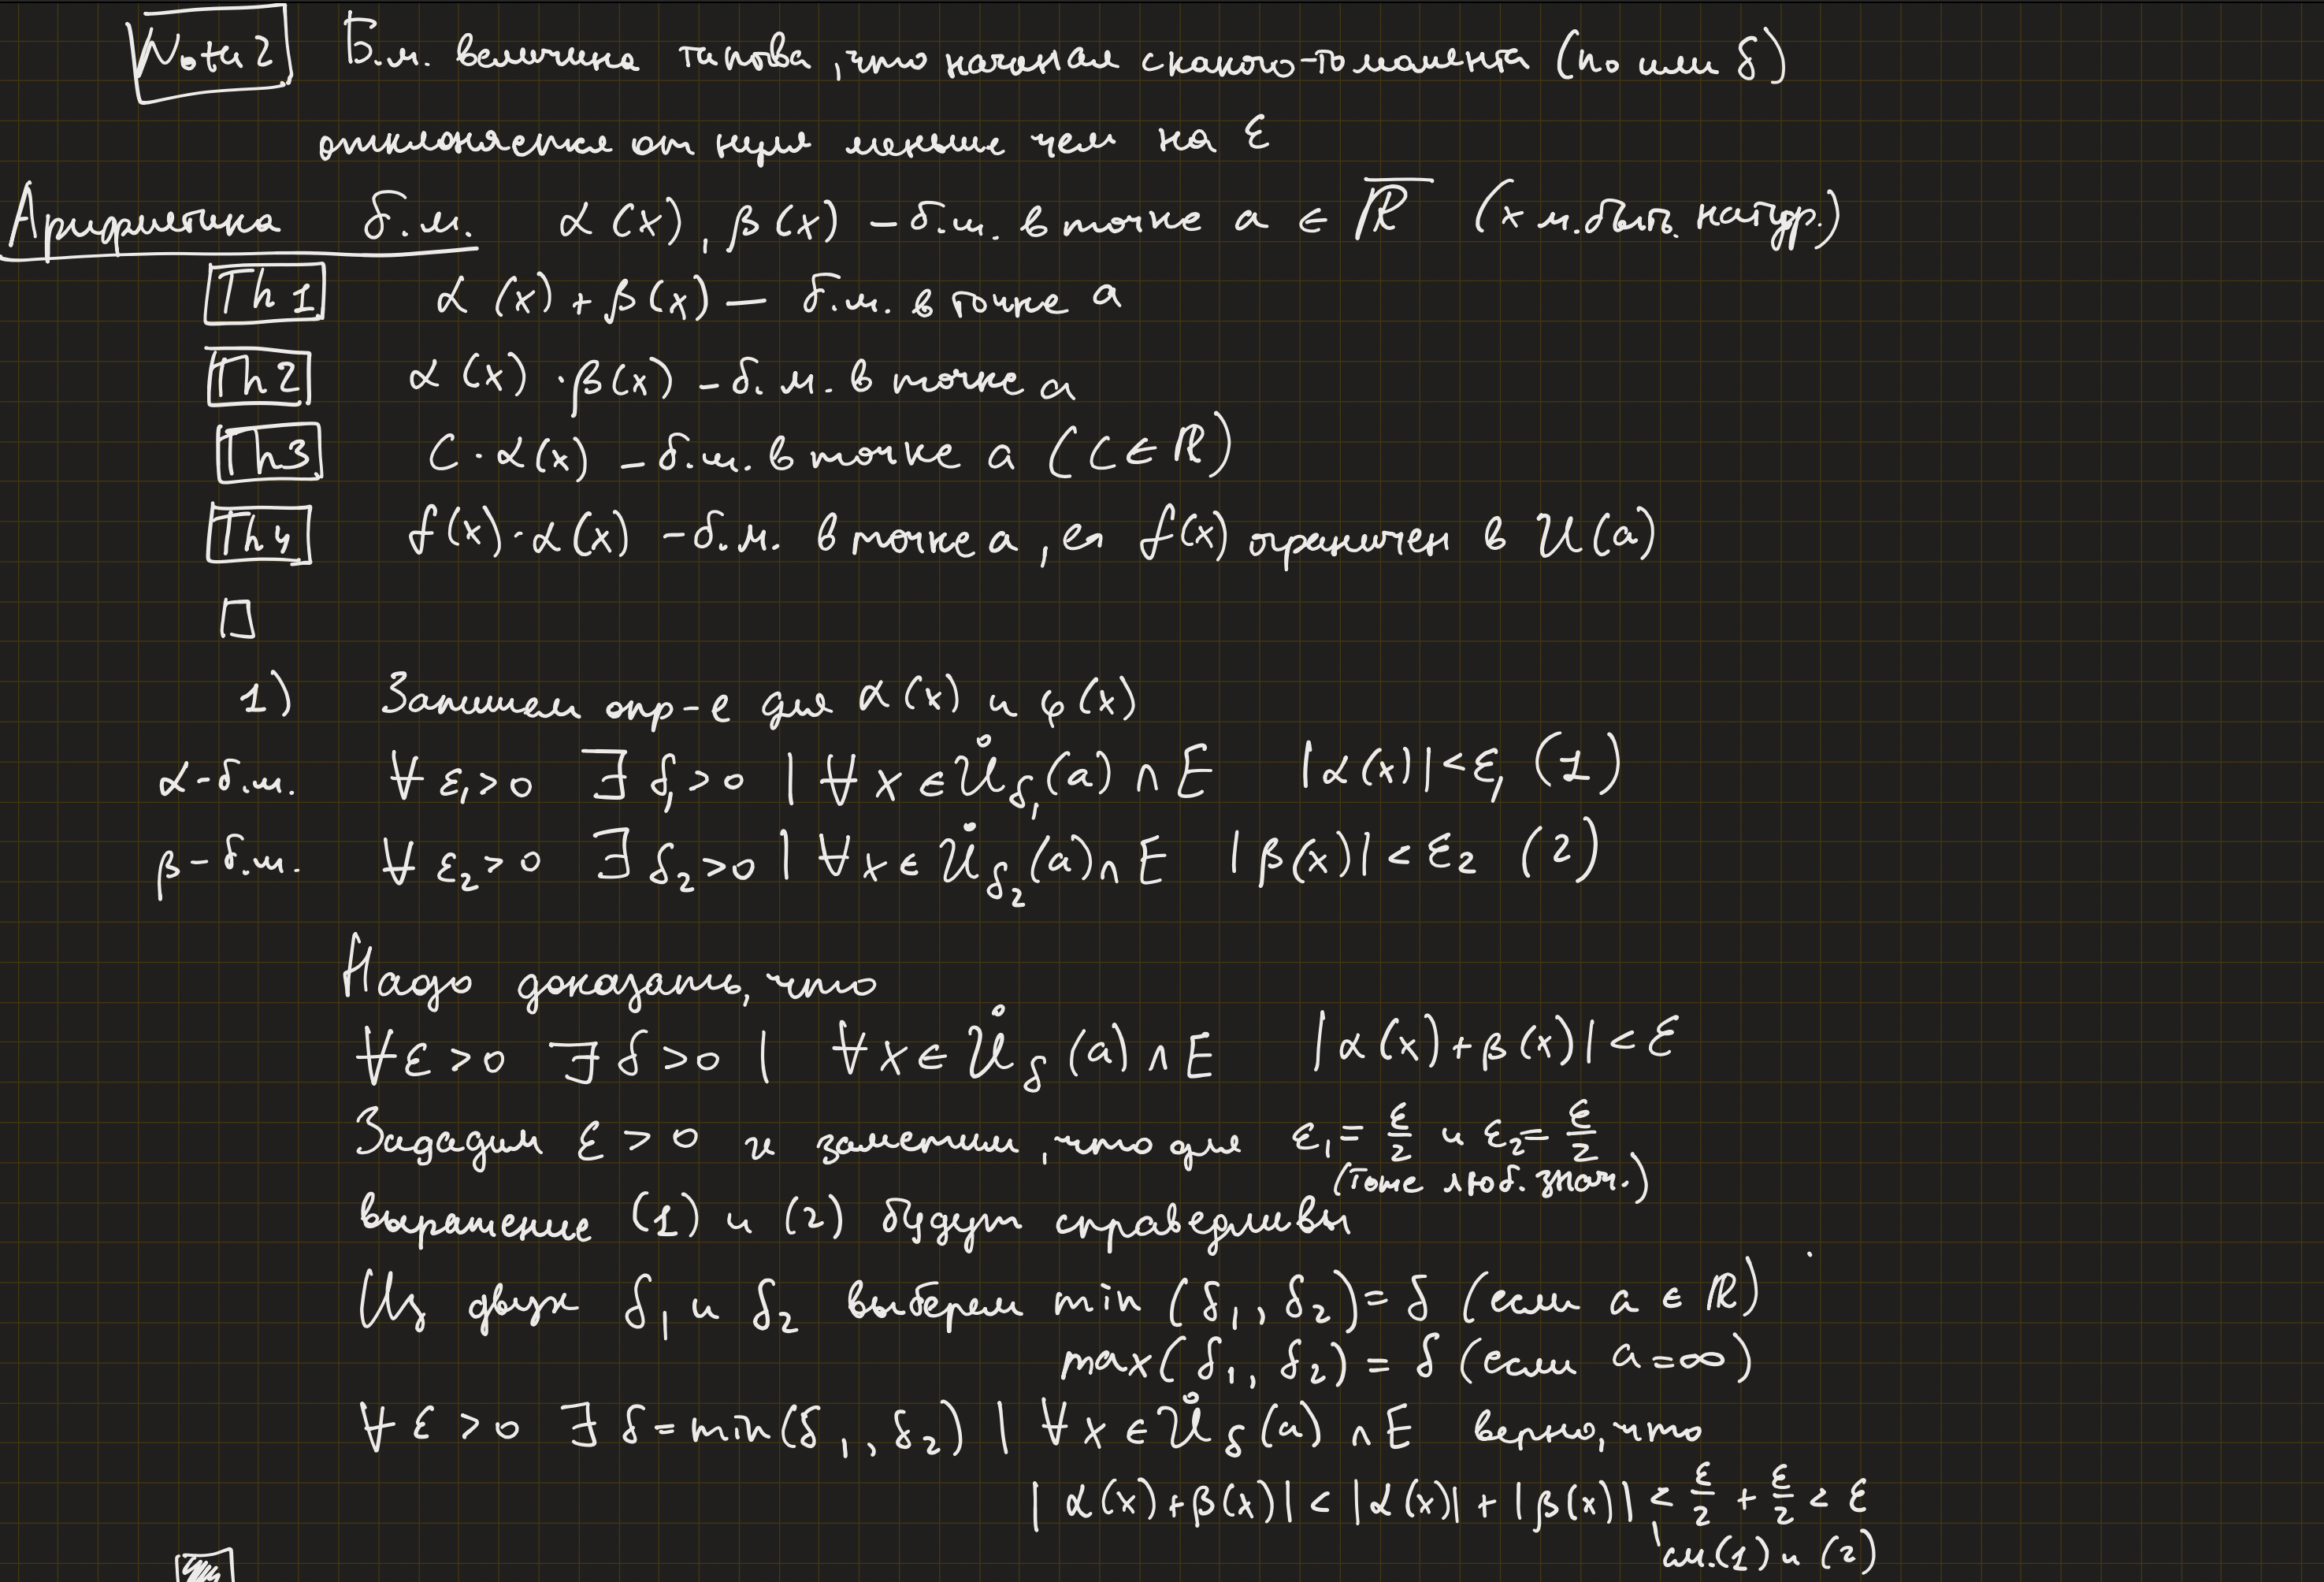 Note 2 Б.м. величина такова, что начиная с какого-то момента (n₀ или δ)
отклоняется от нуля меньше чем на ε
Арифметика б.м. α(x), β(x) – б.м. в точке a ∈ R̅ (x м.быть натур.)
Th 1 α(x) + β(x) — б.м. в точке a
Th 2 α(x) · β(x) – б.м. в точке a
Th 3 C · α(x) – б.м. в точке a (C ∈ ℝ)
Th 4 f(x) · α(x) – б.м. в точке a, ея f(x) ограничен в U(a)
□
1) Запишем опр-е для α(x) и φ(x)
α-б.м. ∀ ε₁ > 0 ∃ δ₁ > 0 | ∀ x ∈ Ů_δ₁(a) ∩ E |α(x)| < ε₁ (1)
β-б.м. ∀ ε₂ > 0 ∃ δ₂ > 0 | ∀ x ∈ Ů_δ₂(a) ∩ E |β(x)| < ε₂ (2)
Надо доказать, что
∀ ε > 0 ∃ δ > 0 | ∀ x ∈ Ů_δ(a) ∩ E |α(x) + β(x)| < ε
Зададим ε > 0 и заметим, что для ε₁ = ε/2 и ε₂ = ε/2
(тоже люб. знач.)
выражение (1) и (2) будут справедливы
Из двух δ₁ и δ₂ выберем min (δ₁, δ₂) = δ (если a ∈ ℝ)
max(δ₁, δ₂) = δ (если a = ∞)
∀ ε > 0 ∃ δ = min(δ₁, δ₂) | ∀ x ∈ Ů_δ(a) ∩ E верно, что
|α(x) + β(x)| < |α(x)| + |β(x)| < ε/2 + ε/2 < ε
см.(1) и (2)